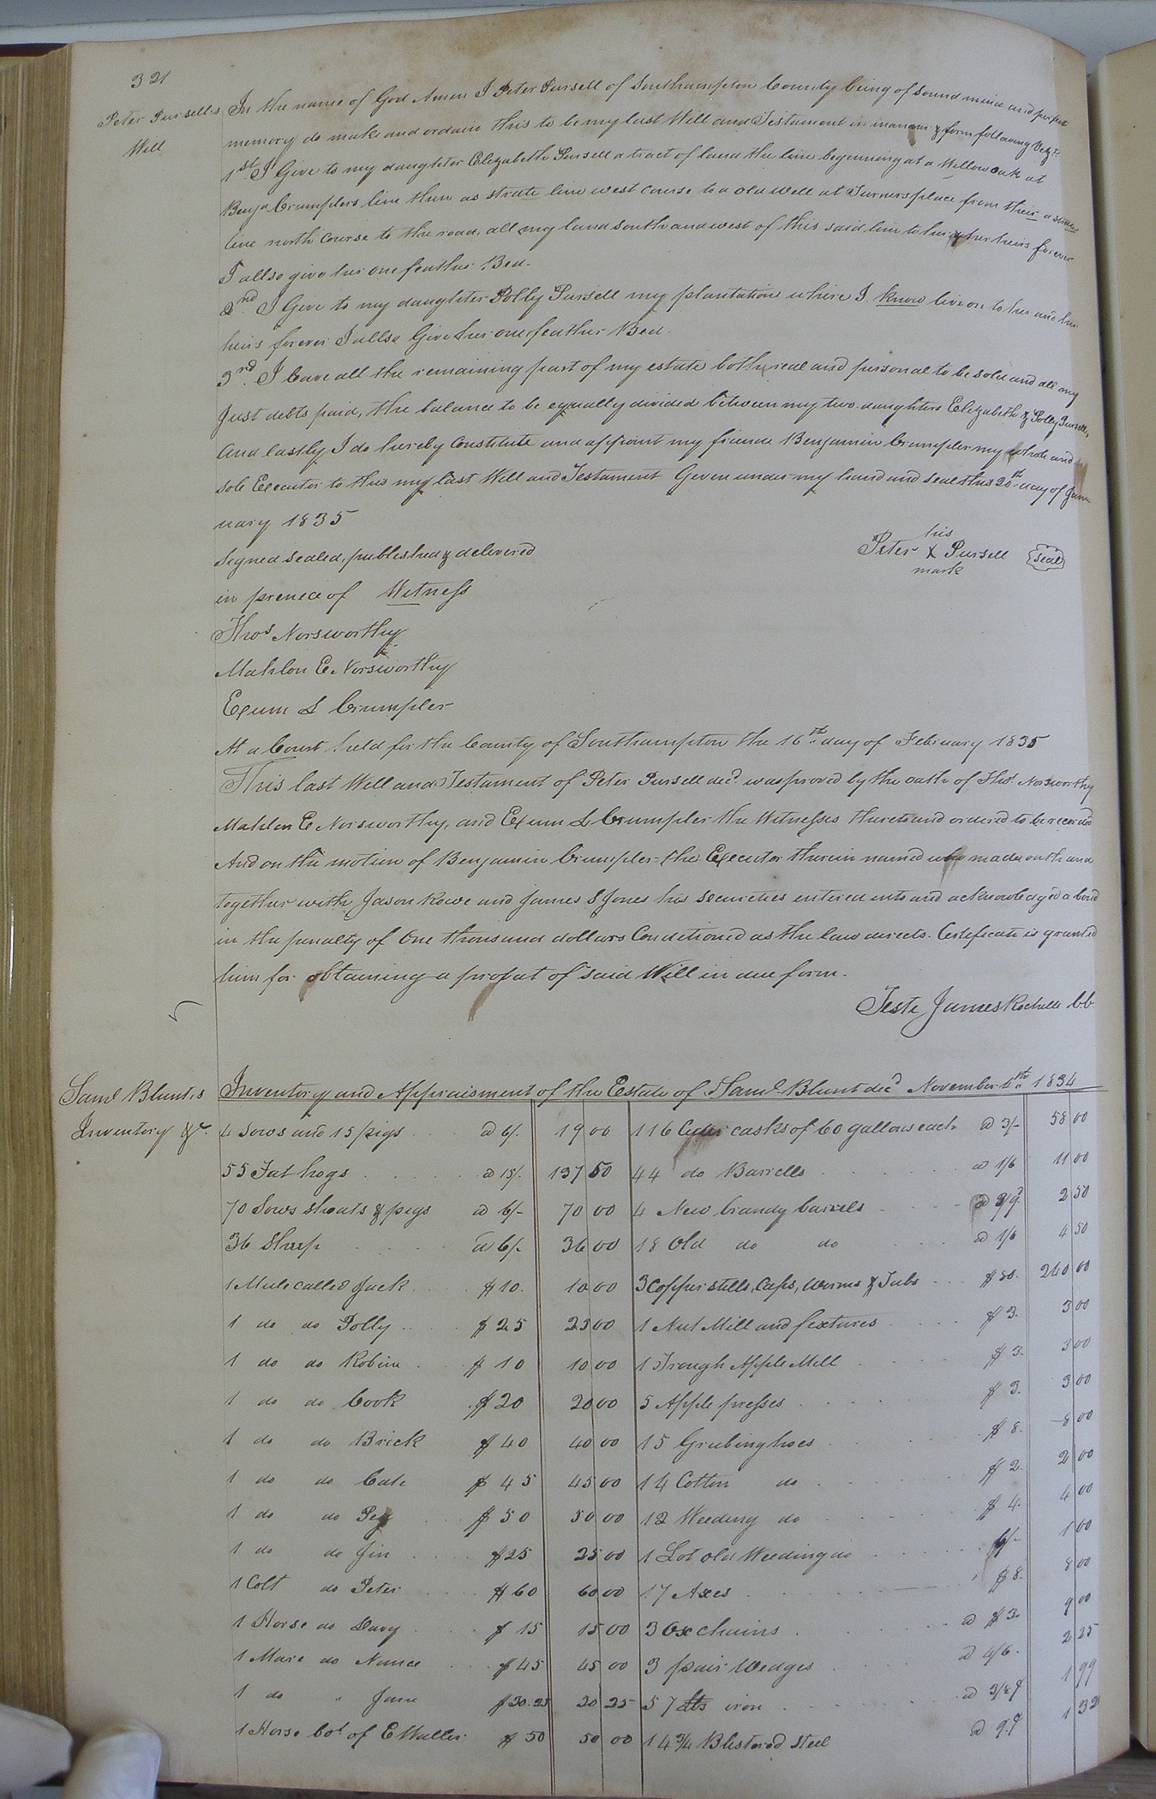 321
Peter Pursells
Will
In the name of God Amen I Peter Pursell of Southampton County being of sound mind and perfect
memory do make and ordain this to be my last Will and Testament in manner & form following Viz.
1st. I Give to my daughter Elizabeth Pursell a tract of land the line beginning at a Willow oak at
Benja Crumplers line then as strate line west course to a old well at Turners place from their a strate
line north course to the road, all my land south and west of this said line to her & her heirs forever
I allso give her one feather Bed.
2nd. I Give to my daughter Polly Pursell my plantation where I know live on to her and her
heirs forever I allso Give her one feather Bed.
3rd. I leave all the remaining part of my estate both real and personal to be sold and all my
Just debts paid, the balance to be equally divided between my two daughters Elizabeth & Polly Pursell,
And lastly I do hereby Constitute and appoint my friend Benjamin Crumpler my whole and
sole Executor to this my last Will and Testament Given under my hand and seal this 20th day of Jan
uary 1835
Signed sealed, published & delivered
in prenece of Witness
his
Peter X Pursell (seal)
mark
Thos Norsworthy
Mahlon E. Norsworthy
Exum L Crumpler
At a Court held for the County of Southampton the 16th day of February 1835
This last Will and Testament of Peter Pursell decd. was proved by the oath of Thos Norsworthy
Mahlon E Norsworthy, and Exum L Crumpler the Witnesses thereto and ordered to be recorded
And on the motion of Benjamin Crumpler the Executor therein named who made oath and
together with Jason Rowe and James S Jones his securities entered into and acknowledged a bond
in the penalty of One thousand dollars Conditioned as the law directs. Certificate is granted
him for obtaining a probat of said Will in due form.
Teste James Rochelle CC
Saml Blunts
Inventory &c.
Inventory and Appraisment of the Estate of Saml. Blunt decd November 1834
4 Sows and 15 pigs @ 6/. 19 00 116 Cider casks of 60 gallons each @ 3/- 58 00
55 Fat hogs @ 15/. 137 50 44 do Barrells @ 1/6 11 00
70 Sows shoats & pigs @ 6/- 70 00 4 New brandy barrels 2 50
36 Sheep @ 6/- 36 00 18 Old do do @ 1/6 4 50
1 Mule called Jack $10. 10 00 3 Copper stills, Caps, worms & Tubs $80. 240 00
1 do do Polly $25 25 00 1 Nut Mill and fixtures $3. 3 00
1 do do Robin $10 10 00 1 Trough Apple Mill $3. 3 00
1 do do Cook $20 20 00 5 Apple presses $3. 3 00
1 do do Brick $40 40 00 15 Grubing hoes $8. 8 00
1 do do Cate $45 45 00 14 Cotton do $2. 2 00
1 do do Peg $50 50 00 12 Weeding do $4. 4 00
1 do do Jin $25 25 00 1 Lot old Weeding do 6/- 1 00
1 Colt do Peter $60 60 00 17 Axes $8. 8 00
1 Horse do Davy $15 15 00 3 Ox chains @ $3. 9 00
1 Mare do Nance $45 45 00 3 pair Wedges @ 4/6. 2 25
1 do " Jane $20.25 20 25 57 lbs iron 1 99
1 Horse bot of E Waller $50 50 00 14 3/4 Blistered Steel @ 9d 1 32